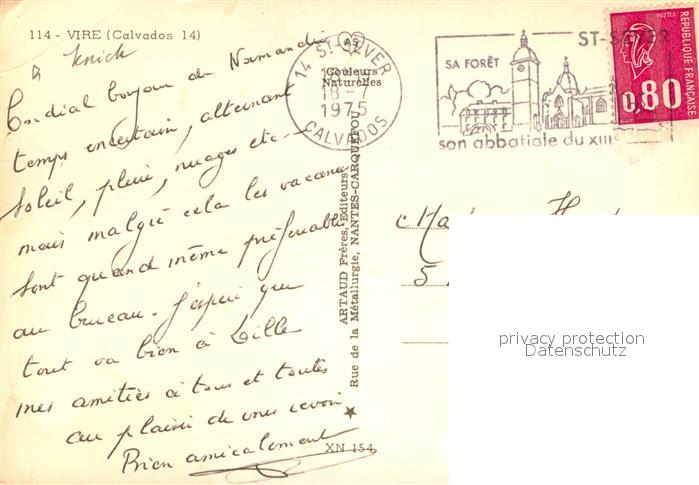 114 - VIRE (Calvados 14)
Cordial bonjour de Normandie
temps incertain, alternant
soleil, pluie, nuages etc...
mais malgré cela les vacances
sont quand même préférables
au bureau. J'espère que
tout va bien à Lille
mes amitiés à tous et toutes
au plaisir de vous revoir
Bien amicalement
XN 154
AS
Couleurs
Naturelles
ARTAUD Frères, Editeurs
Rue de la Métallurgie, NANTES-CARQUEFOU
14 ST-SEVER
1975
CALVADOS
ST-SEVER
SA FORÊT
son abbatiale du XIII
POSTES
REPUBLIQUE FRANÇAISE
0,80
5
privacy protection
Datenschutz